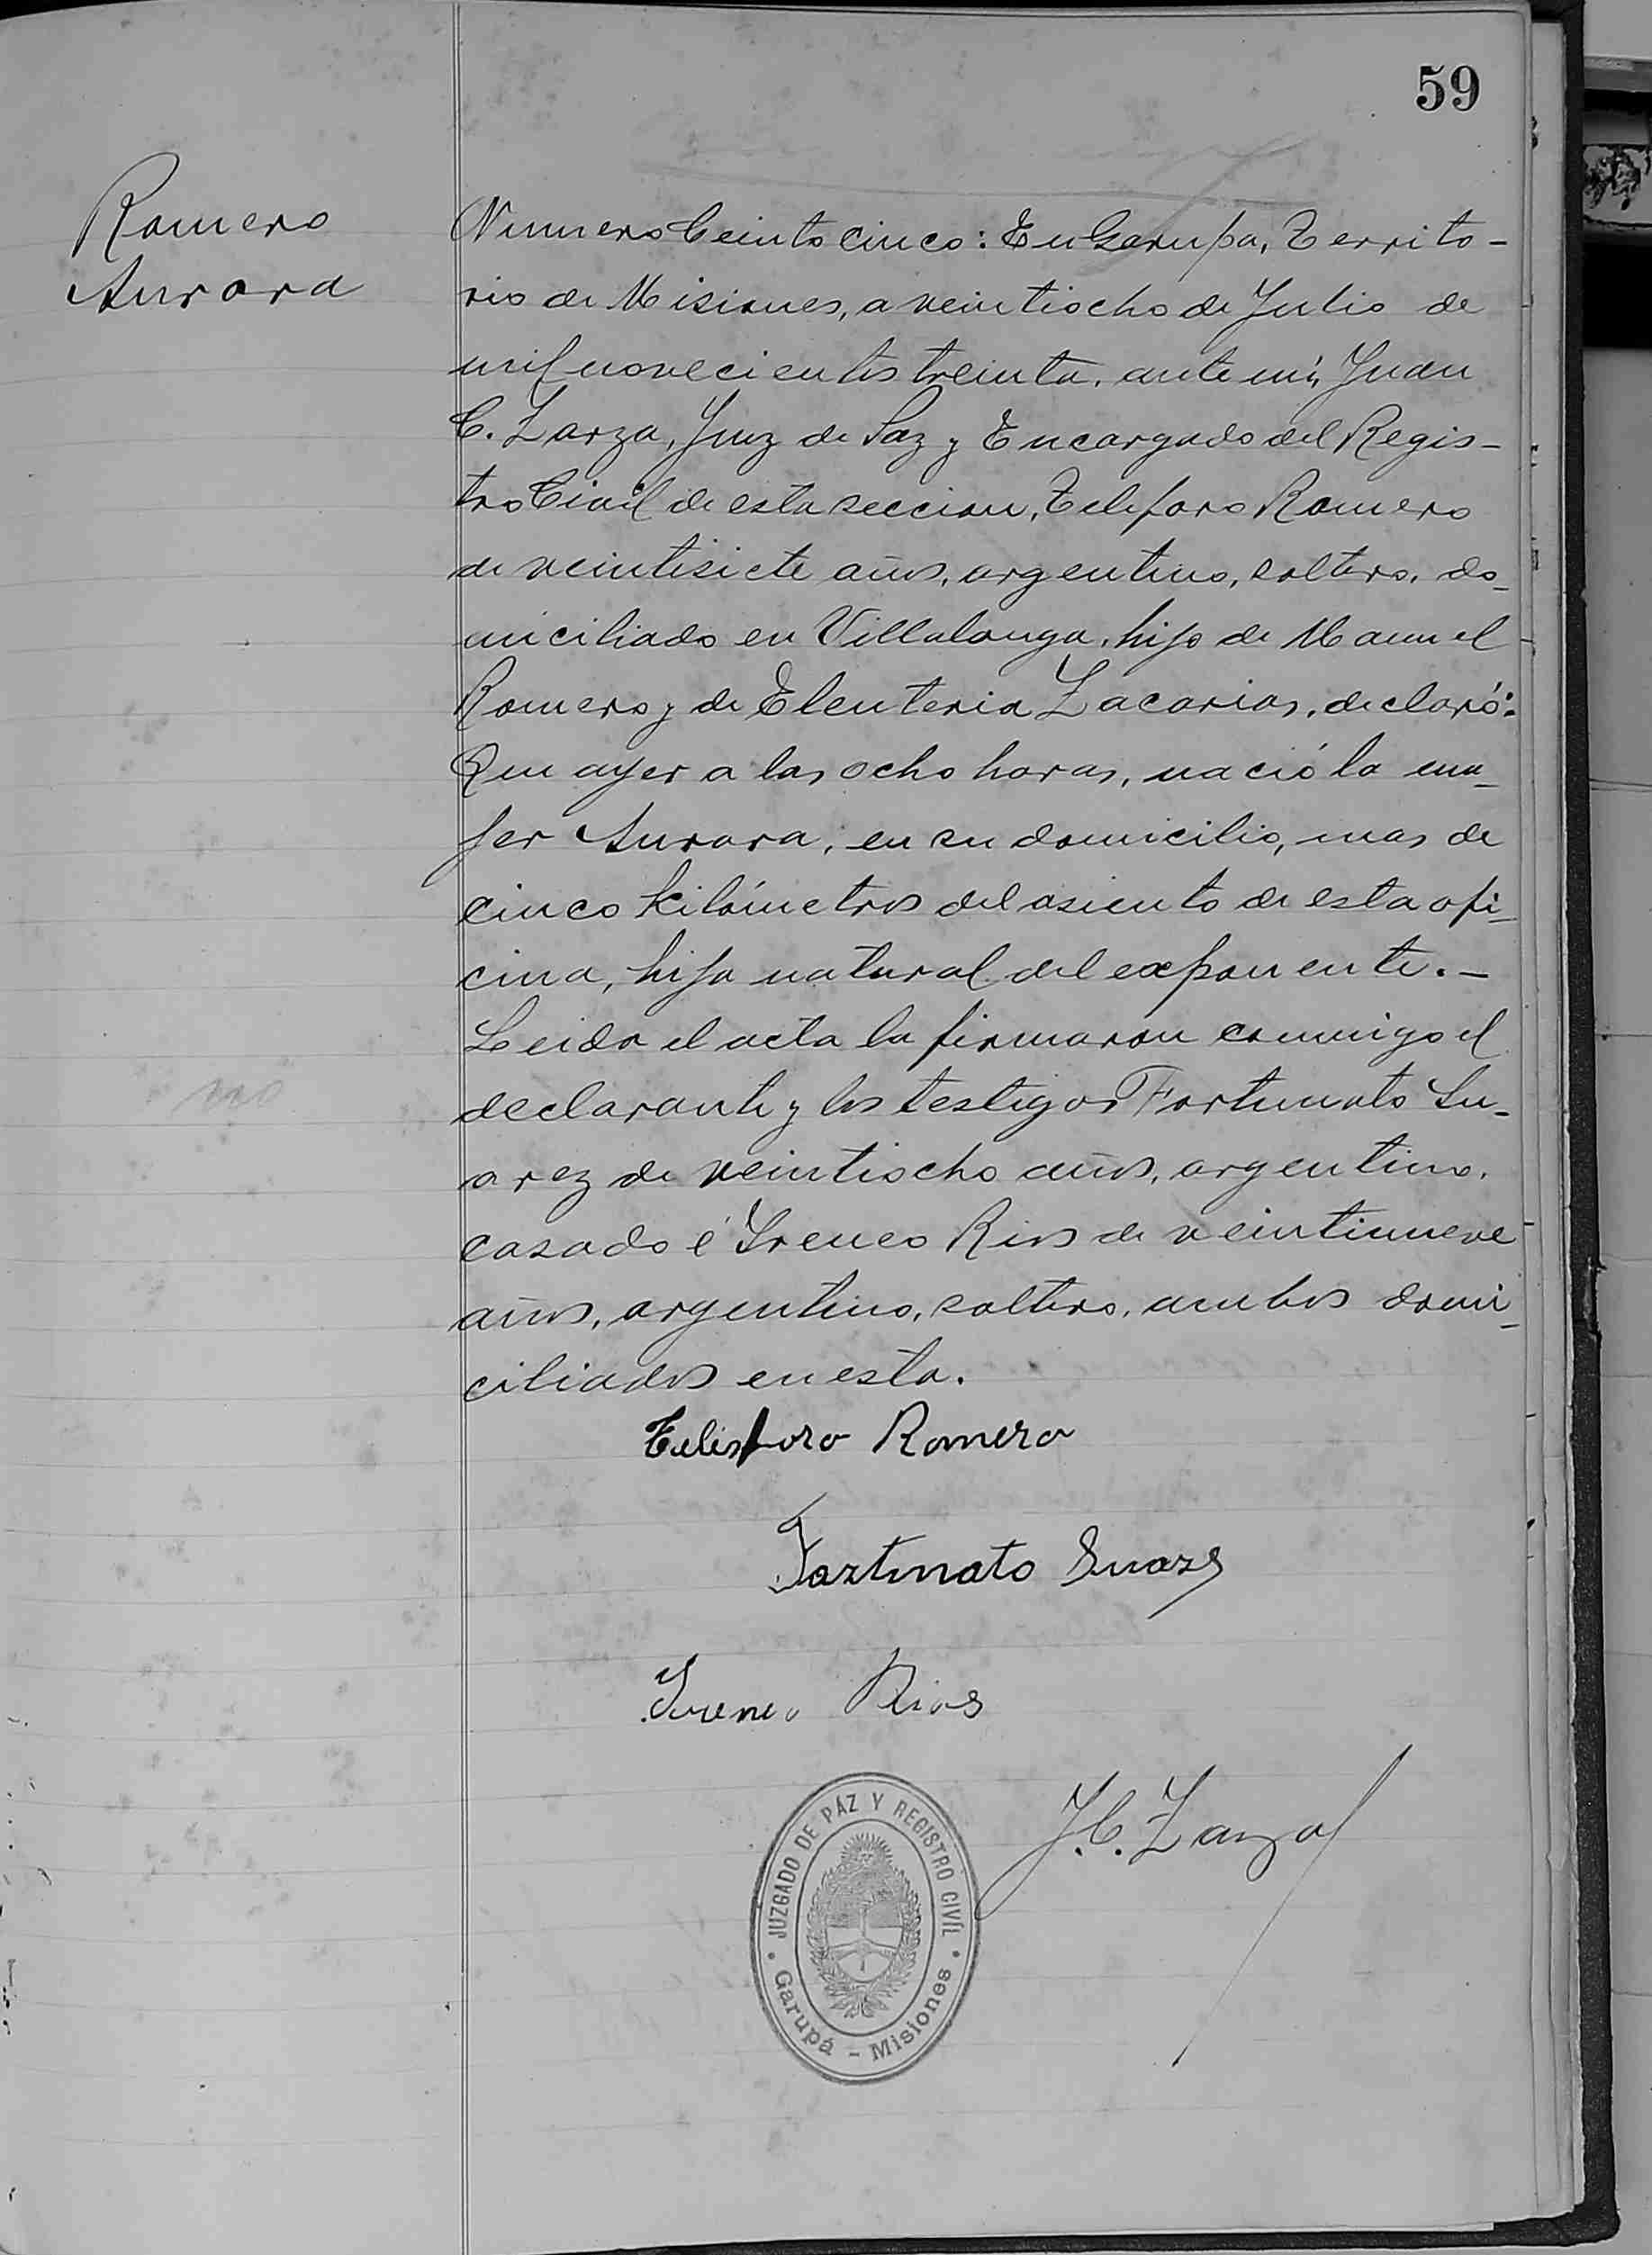 59
Romero
Aurora
Numero Ceinto cinco: En Garupa, Territo-
rio de Misiones, a veintiocho de Julio de
mil novecientos treinta, ante mi, Juan
C. Zarza, Juez de Paz y Encargado del Regis-
tro Civil de esta seccion, Teleforo Romero
de veintisiete años, argentino, soltero, do-
miciliado en Villalonga, hijo de Manuel
Romero y de Eleuteria Zacarias, declaró:
Que ayer a las ocho horas, nació la mu-
jer Aurora, en su domicilio, mas de
cinco kilómetros del asiento de esta ofi-
cina, hija natural del exponente.-
Leida el acta la firmaron conmigo el
declarante y los testigos Fortunato Su-
arez de veintiocho años, argentino,
casado é Ireneo Rios de veintinueve
años, argentino, soltero, ambos domi-
ciliados en esta.
Telesforo Romero
Fortunato Suarez
Ireneo Rios
J. C. Zarza
JUZGADO DE PAZ Y REGISTRO CIVIL
Garupá - Misiones